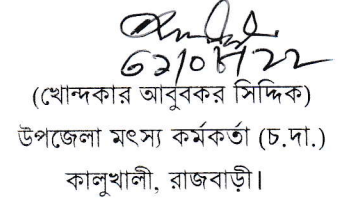 (খোন্দকার আবুবকর সিদ্দিক)
উপজেলা মৎস্য কর্মকর্তা (চ.দা.)
কালুখালী, রাজবাড়ী।